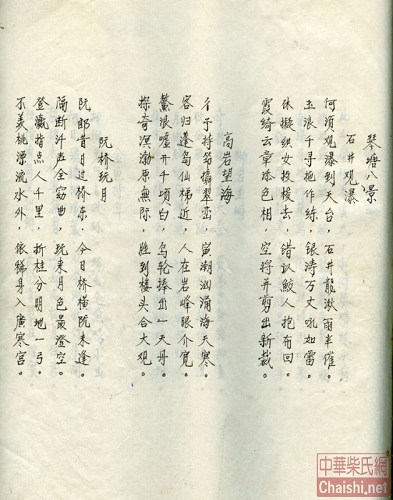 琴塘八景
石井观瀑
何须观瀑到天台，石井龍湫雨半催。
玉浪千寻拖作练，银涛万丈吼如雷
休擬织女投梭去，错认鲛人抱布回。
霞绮云章添色相，空将并剪出新裁。
高岩望海
彳亍持笻攝翠峦，潮汹涌海天寒。
容归蓬岛仙梯近，人在岩峰眼介宽。
鰲浪嘘开千顷白，乌轮捧出一天丹。
探奇溟渤原無际，胜到楼头合大观。
阮桥玩月
阮郎昔日过桥东，今日桥横阮未逢。
隔断声全窈曲，玩来月色最澄空。
登瀛指点人千里，折桂分明地一弓。
不羡桃源流水外，依稀身入廣寒宫。
中華柴氏網
Chaishi.net